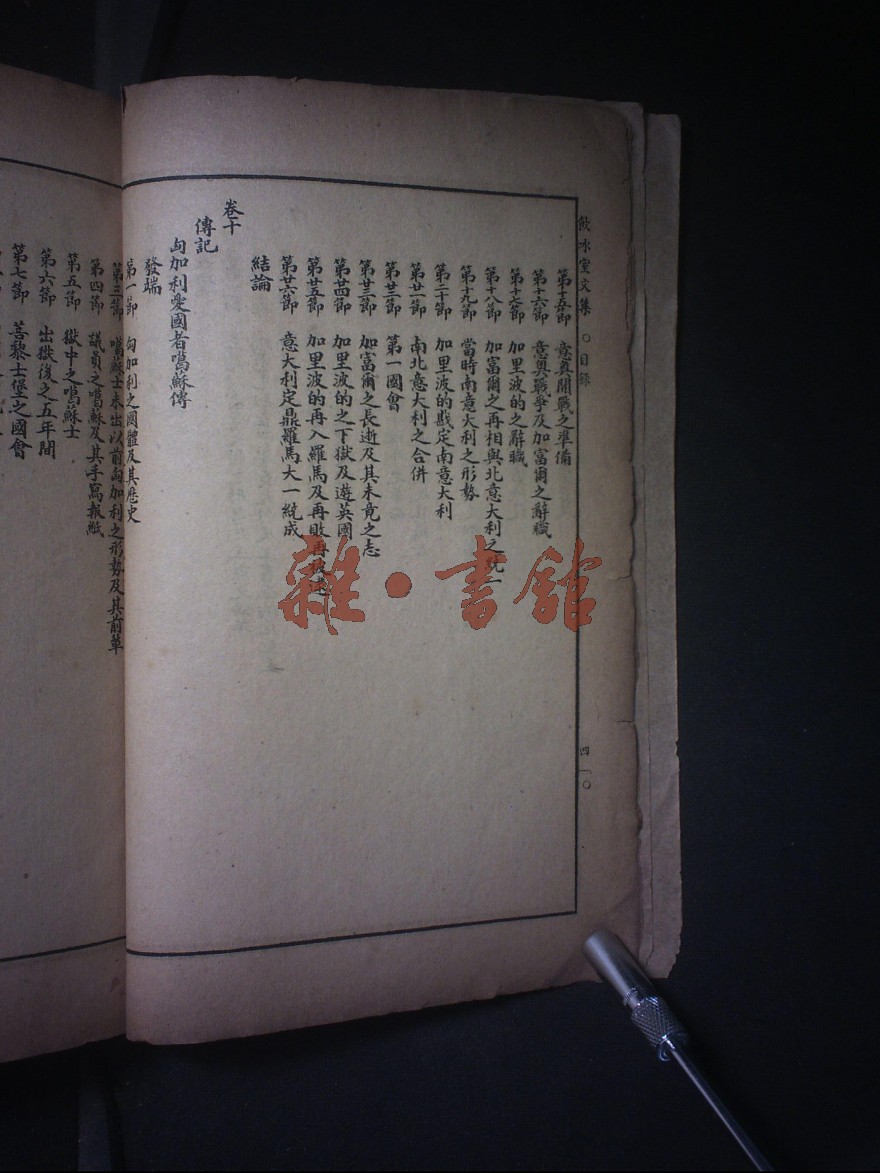 飲冰室文集 ○目錄
四一○
第十五節 意奧開戰之準備
第十六節 意奧戰爭及加富爾之辭職
第十七節 加里波的之辭職
第十八節 加富爾之再相與北意大利之統一
第十九節 當時南意大利之形勢
第二十節 加里波的戡定南意大利
第廿一節 南北意大利之合併
第廿二節 第一國會
第廿三節 加富爾之長逝及其未竟之志
第廿四節 加里波的之下獄及遊英國
第廿五節 加里波的再入羅馬及再敗再被逮
第廿六節 意大利定鼎羅馬大一統成
結論
卷十
傳記
匈加利愛國者噶蘇士傳
發端
第一節 匈加利之國體及其歷史
第三節 噶蘇士未出以前匈加利之形勢及其前輩
第四節 議員之噶蘇及其手寫報紙
第五節 獄中之噶蘇士
第六節 出獄後之五年間
第七節 菩黎士堡之國會
雜·書館